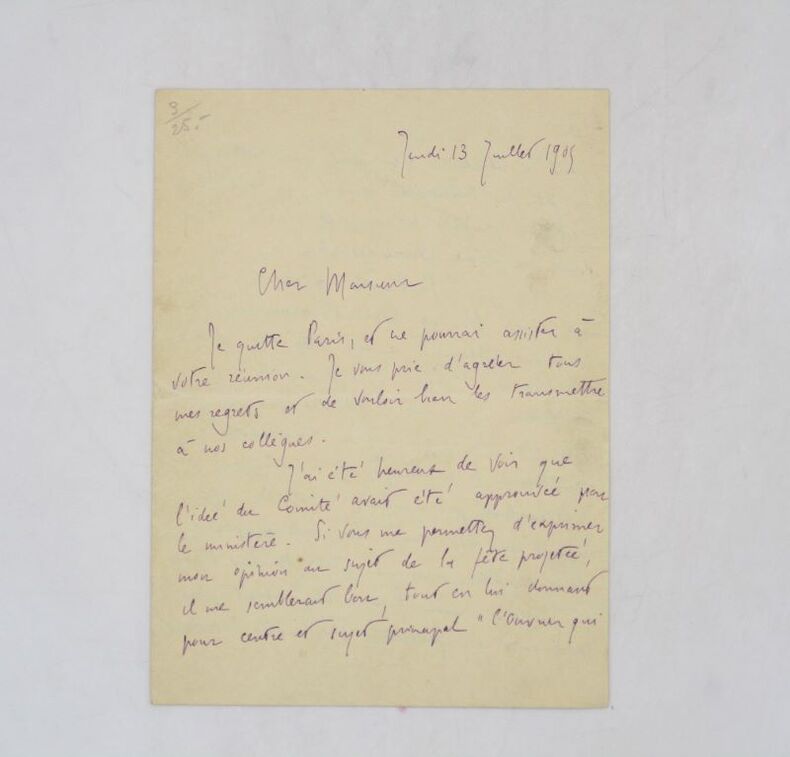 3/25.-
Jeudi 13 Juillet 1905
Cher Monsieur
Je quitte Paris, et ne pourrai assister à
votre réunion. Je vous prie d'agréer tous
mes regrets et de vouloir bien les transmettre
à nos collègues.
J'ai été heureux de voir que
l'idée du Comité avait été approuvée par
le ministère. Si vous me permettez d'exprimer
mon opinion au sujet de la fête projetée,
il me semblerait bon, tout en lui donnant
pour centre et sujet principal "l'Ouvrier qui